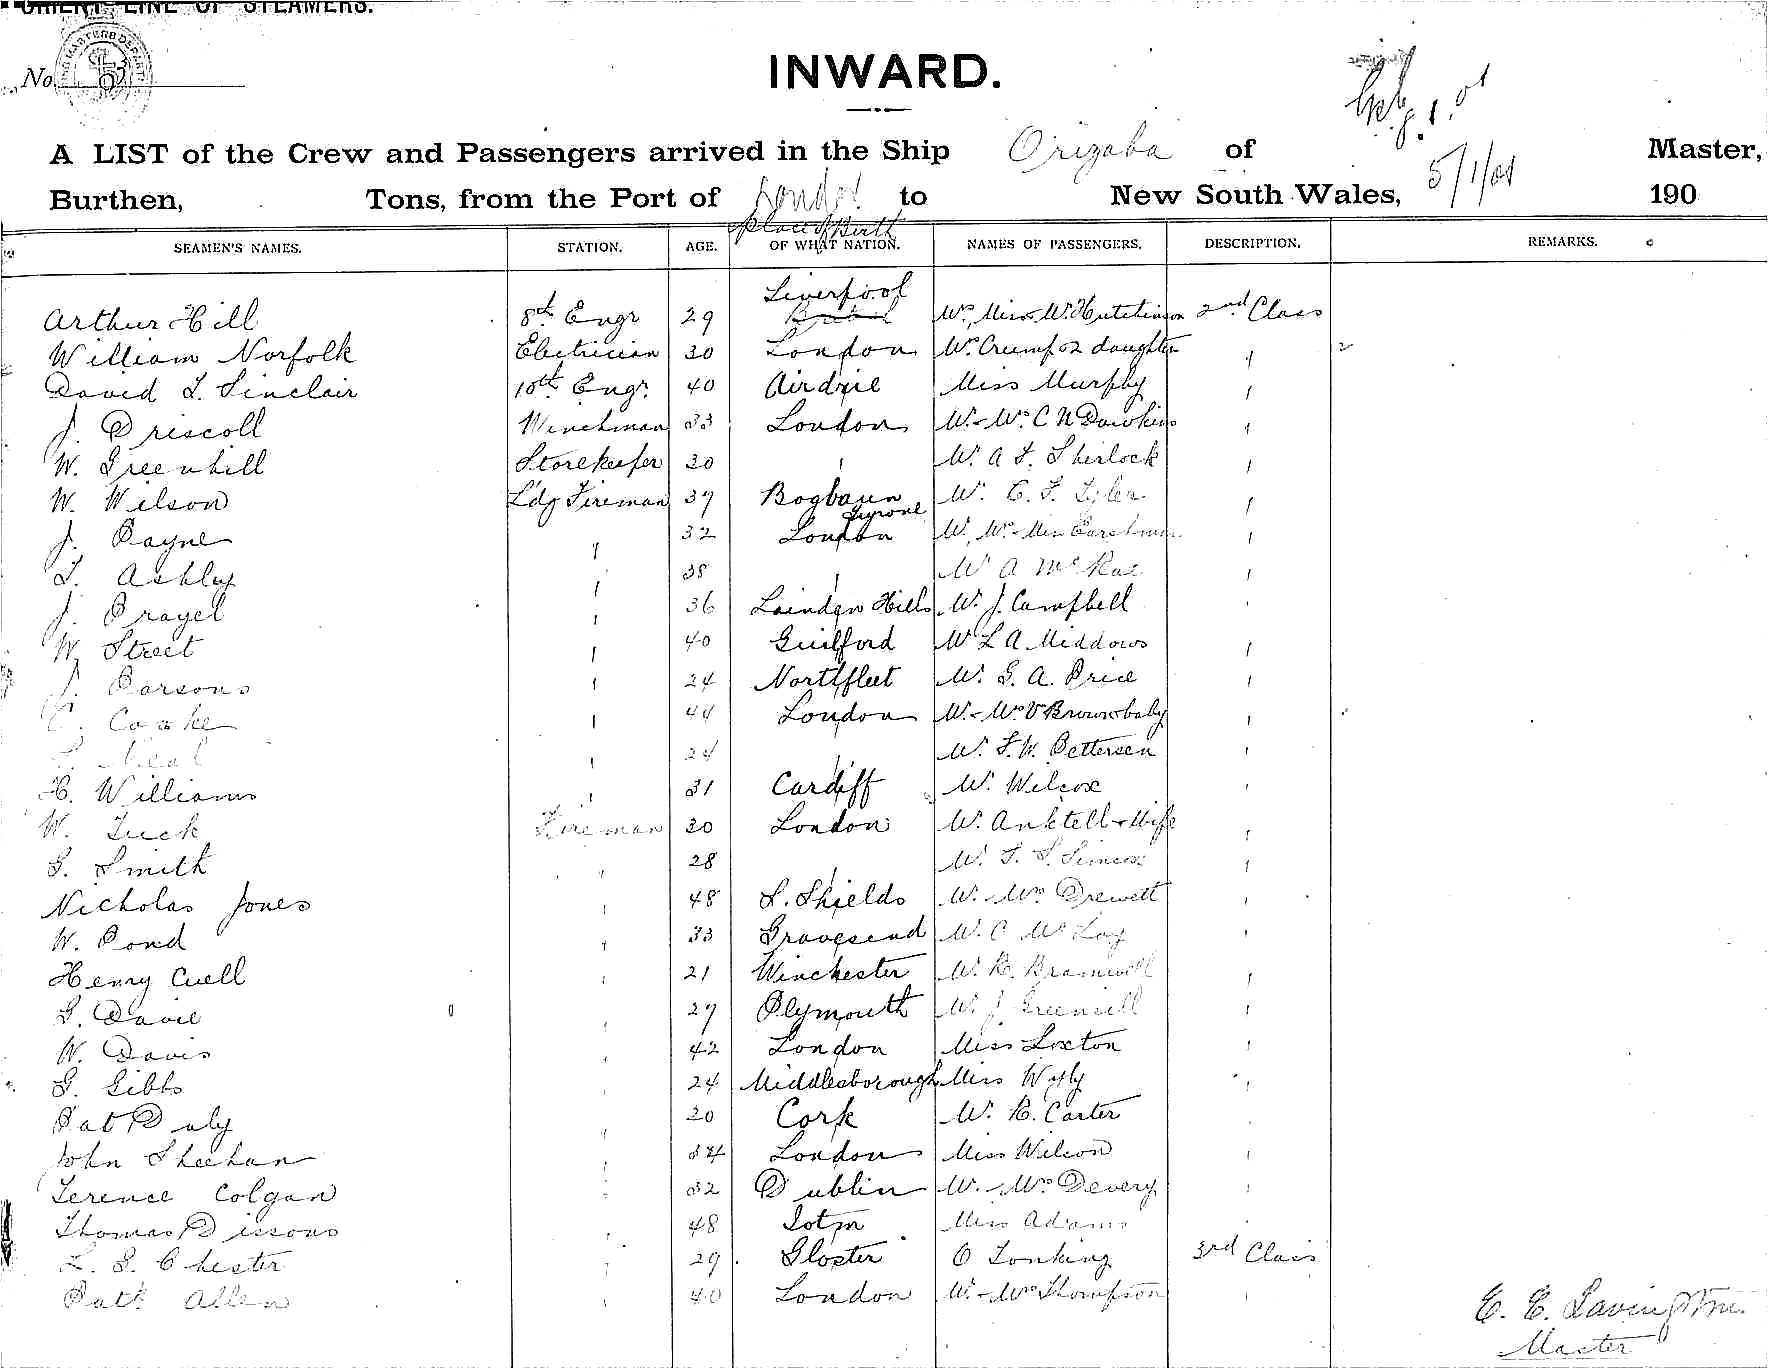 ORIENT LINE OF STEAMERS.
No.
INWARD.
A LIST of the Crew and Passengers arrived in the Ship Orizaba of Master,
Burthen, Tons, from the Port of London to New South Wales, 5/1/01 190
Place of Birth
SEAMEN'S NAMES. STATION. AGE. OF WHAT NATION. NAMES OF PASSENGERS. DESCRIPTION. REMARKS.
Liverpool
Arthur Hill 8th Engr 29 Mr, Miss Hutchinson 2nd Class
William Norfolk Electrician 30 London Mrs Crump & 2 daughter "
David L. Sinclair 10th Engr. 40 Airdrie Miss Murphy "
J. Driscoll Winchman 33 London Mr & Mrs C N Dawkins "
W. Greenhill Storekeeper 30 " Mr A F. Sherlock "
W. Wilson Ldg Fireman 39 Bogbaun Mr. E. F. Tyler "
Tyrone
J. Payne " 32 London Mr, Mrs & Miss "
T. Ashby " 38 " Mr A McRae "
J. Prayel " 36 Laindon Hills Mr. J. Campbell "
W. Street " 40 Guilford Mr L A Meddows "
J. Parsons " 24 Northfleet Mr. G. A. Price "
Cooke " 44 London Mr & Mrs V Brown & baby "
" 24 " Mr. F. W. Pettersen "
H. Williams " 31 Cardiff Mr. Wilcox "
W. Tuck Fireman 30 London Mr. Anktell & Wife "
G. Smith " 28 " Mr. T. S. Simcox "
Nicholas Jones " 48 S. Shields Mr. & Mrs Drewett "
W. Pond " 33 Gravesend Mr. C McLoy "
Henry Cuell " 21 Winchester Mr. R. Bramwell "
G. Davie " 29 Plymouth Mr J "
W. Davis " 42 London Miss Loxton "
G. Gibbs " 24 Middlesborough Miss "
Pat Daly " 20 Cork Mr. R. Carter "
John Sheehan " 34 London Miss Wilson "
Terence Colgan " 32 Dublin Mr. & Mrs Devery "
Thomas Dissons " 48 Miss Adams "
L. G. Chester " 29 Gloster O Lonking 3rd Class
Patk Allen " 40 London Mr. & Mrs Thompson "
E. E. Lavington
Master